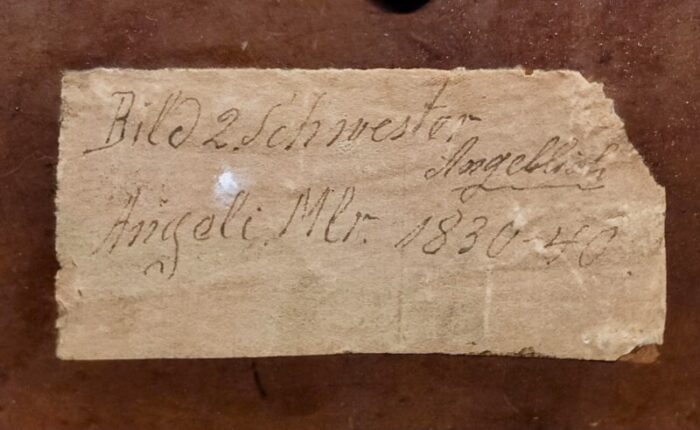 Bild 2 Schwester
Angeblich
Angeli Mlr. 1830-40.